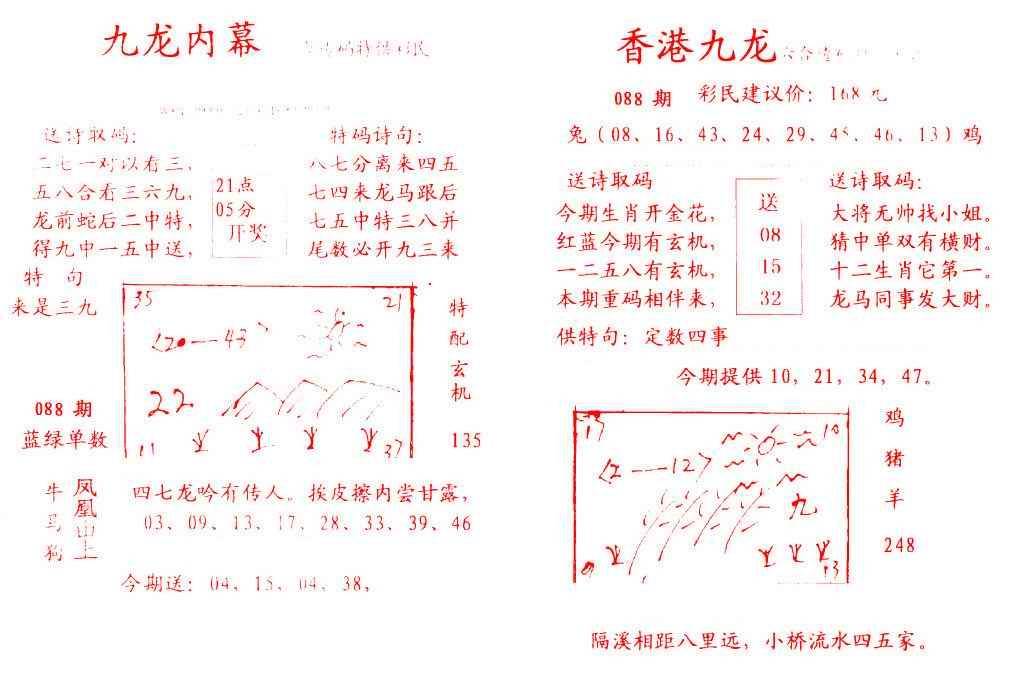 九龙内幕
送诗取码:
二七一对以有三,
五八合有三六九,
龙前蛇后二中特,
得九中一五中送,
特 句
来是三九
21点
05分
开奖
特码诗句:
八七分离来四五
七四来龙马跟后
七五中特三八并
尾数必开九三来
35
21
<20—43>
22
11
37
特配玄机
135
088 期
蓝绿单数
牛
马
狗
凤凰山上
四七龙吟有传人。挨皮擦内尝甘露,
03、09、13、17、28、33、39、46
今期送: 04、15、04、38,
香港九龙
088 期 彩民建议价: 168
兔(08、16、43、24、29、45、46、13)鸡
送诗取码
今期生肖开金花,
红蓝今期有玄机,
一二五八有玄机,
本期重码相伴来,
送
08
15
32
送诗取码:
大将无帅找小姐。
猜中单双有横财。
十二生肖它第一。
龙马同事发大财。
供特句: 定数四事
今期提供 10, 21, 34, 47。
10
<2—12>
九
鸡
猪
羊
248
隔溪相距八里远, 小桥流水四五家。